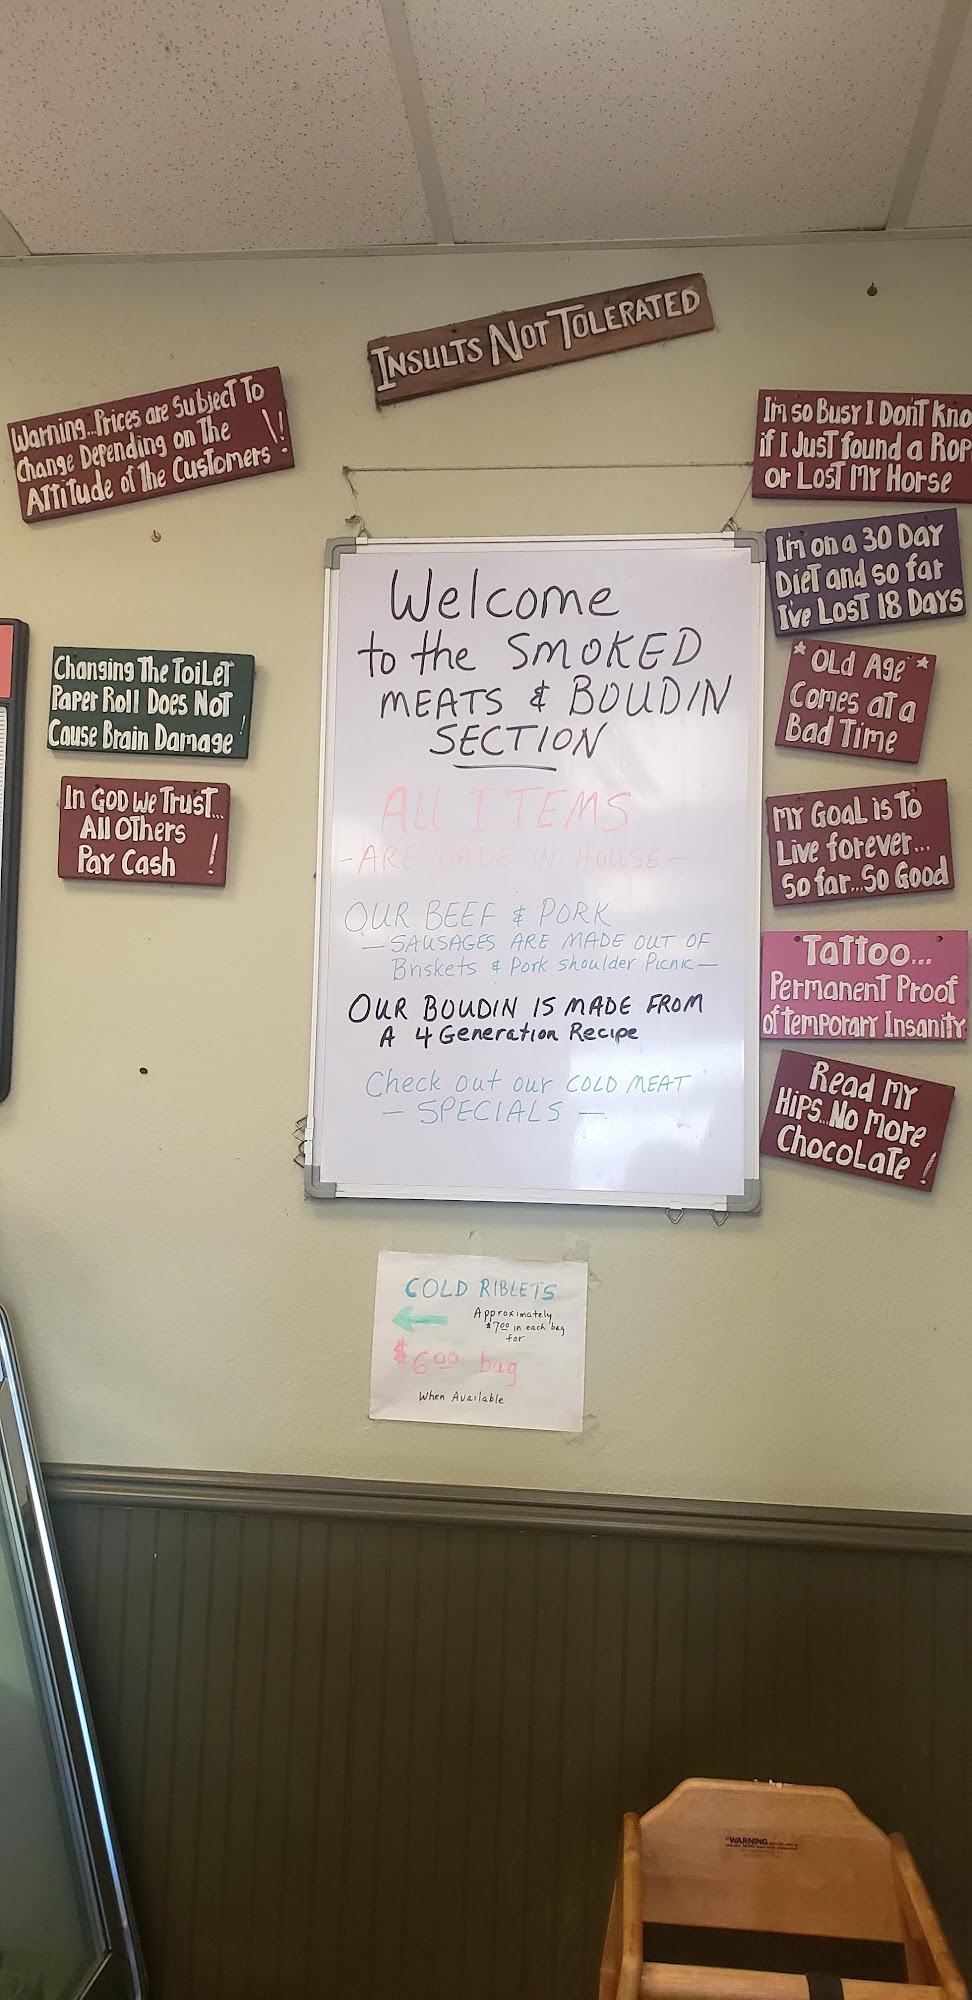 INSULTS NOT TOLERATED
Warning..Prices are Subject To
Change Depending on The
Attitude of The Customers!!
Changing The Toilet
Paper Roll Does Not
Cause Brain Damage!
In GOD We Trust...
All Others
Pay Cash!
Welcome
to the SMOKED
MEATS & BOUDIN
SECTION
ALL ITEMS
-ARE MADE IN HOUSE-
OUR BEEF & PORK
- SAUSAGES ARE MADE OUT OF
Briskets & Pork shoulder Picnic -
OUR BOUDIN IS MADE FROM
A 4 Generation Recipe
Check out our COLD MEAT
- SPECIALS -
I'm so Busy I Don't Kno
if I Just found a Rop
or Lost My Horse
I'm on a 30 Day
Diet and so far
I've Lost 18 Days
*Old Age*
Comes at a
Bad Time
My Goal is To
Live forever...
So far...So Good
Tattoo...
Permanent Proof
of Temporary Insanity
Read My
Hips..No More
Chocolate!
COLD RIBLETS
Approximately
$7.00 in each bag
for
$6.00 bag
When Available
"WARNING